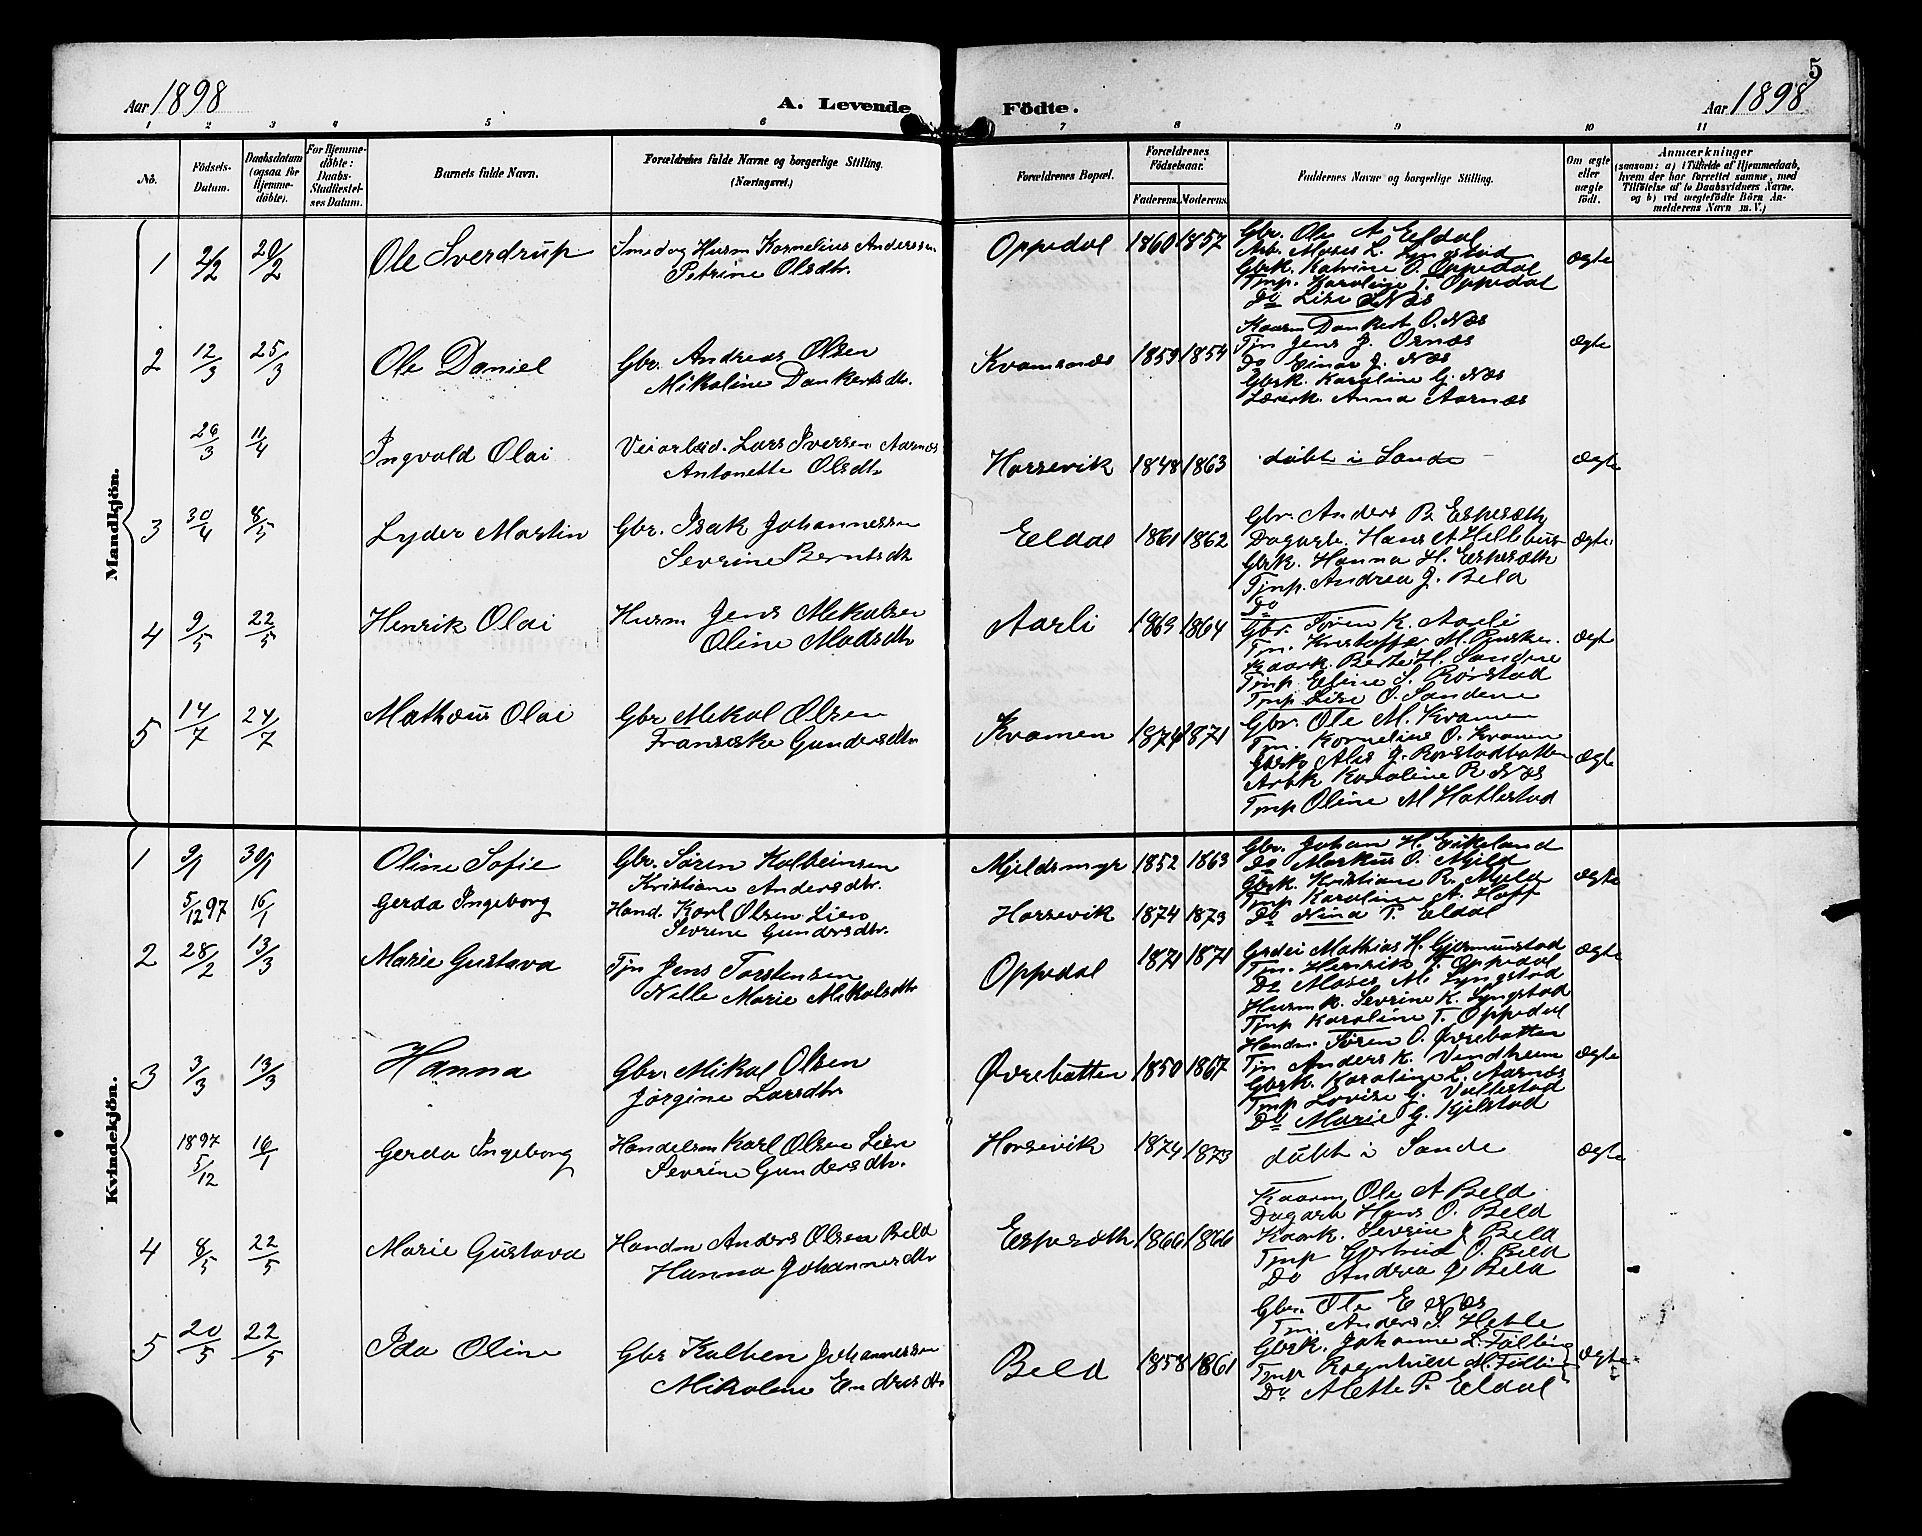 5
Aar 1898
A. Levende Födte.
Aar 1898
1 2 3 4 5 6 7 8 9 10 11
No.
Födsels-Datum.
Daabsdatum (ogsaa for Hjemme-döbte).
For Hjemme-döbte: Daabs-Stadfæstel-ses Datum.
Barnets fulde Navn.
Forældrenes fulde Navne og borgerlige Stilling. (Næringsvei.)
Forældrenes Bopæl.
Forældrenes Födselsaar.
Faderens. Moderens.
Faddernes Navne og borgerlige Stilling.
Om ægte eller uægte födt.
Anmærkninger
(saasom: a) i Tilfælde af Hjemmedaab,
hvem der har forrettet samme, med
Tilföielse af to Daabsvidners Navne,
og b) ved uægtefödte Börn An-
melderens Navn m. V.)
Mandkjön.
1 2/2 20/2 Ole Sverdrup
Smed og Husm Kornelius Anderssen
Petrine Olsdtr.
Oppedal 1860 1857
Gbr. Ole A Eldal
Arb. Moses L. Lyngstad
Gbrk. Katrine O. Oppedal
Tjnp. Karoline T. Oppedal
Do Lise Næs
ægte
2 12/3 25/3 Ole Daniel
Gbr. Andreas Olsen
Mikaline Dankertsdtr.
Kvamsnæs 1859 1854
Kaarm Dankert O. Næs
Tjn Jens J. Osnæs
Do Einar J. Næs
Gbrk. Karoline G. Næs
Lærerk. Anna Aarnæs
ægte
26/3 11/4 Ingvald Olai
Veiarbeid. Lars Iversen Aarnæs
Antonette Olsdtr
Horsevik 1848 1863
döbt i Sande
ægte
3 30/4 8/5 Lyder Martin
Gbr. Isak Johannessen
Sevrine Berntsdtr
Eldal 1861 1862
Gbr. Anders B. Espesæth
Dagarb. Hans A Hellebust
Gbrk. Hanna H. Espesæth
Tjnp. Andrea J. Beld
Do
ægte
4 9/5 22/5 Henrik Olai
Husm Jens Mikalsen
Oline Madsdtr
Aarli 1863 1864
Gbr. Sören K. Aarli
Tjn. Kristoffer M.
Kaark. Berte H. Sandene
Tjnp Eline S. Rörstad
Tjnp Lise O. Sandene
ægte
5 14/7 24/7 Mathæus Olai
Gbr Mikal Olsen
Fransiske Gundersdtr
Kvamen 1874 1871
Gbr. Ole M. Kvamen
Tjn. Kornelius O. Kvamen
Gbrk Alis J. Rörstadbotten
Arbk Karoline R Næs
Tjnp Oline M Hatlestad
ægte
Kvindekjön.
1 9/1 30/1 Oline Sofie
Gbr. Sören Kolbeinsen
Kristiane Andersdtr.
Mjeldsmyr 1852 1863
Gbr. Johan H. Eikeland
Do Markus O. Mjeld
Gbrk. Kristiane R. Mjeld
Tjnp Karoline A. Hoff
Do Nina P. Eldal
ægte
5/12 97 16/1 Gerda Ingeborg
Hand. Karl Olsen Lien
Sevrine Gundersdtr.
Horsevik 1874 1873
2 28/2 13/3 Marie Gustava
Tjn Jens Torstensen
Nille Marie Mikalsdtr
Oppedal 1871 1871
Mathias H. Gjermunstad
Tjn. Henrik T. Oppedal
Do Moses M. Lyngstad
Husmk. Sevrine K. Lyngstad
Tjnp Karoline T. Oppedal
ægte
3 3/3 13/3 Hanna
Gbr. Mikal Olsen
Jörgine Larsdtr
Övrebotten 1850 1867
Handm. Sören O. Övrebotten
Tjn Anders K. Vandheim
Gbrk. Karoline L. Aarnæs
Tjnp Lovise G. Vallestad
Do Marie G. Kjelstad
ægte
1897 5/12 16/1 Gerda Ingeborg
Handelsm Karl Olsen Lien
Sevrine Gundersdtr.
Horsevik 1874 1873
döbt i Sande
ægte
4 8/5 22/5 Marie Gustava
Handm Anders Olsen Beld
Hanna Johannesdtr
Espesæth 1866 1866
Kaarm Ole A Beld
Dagarb Hans O. Beld
Kaark. Sevrine J Beld
Tjnp Gjertrud O. Beld
Do Andrea J Beld
5 20/5 22/5 Ida Oline
Gbr Kolben Johannessen
Mikaline Endresdtr
Beld 1858 1861
Gbr. Ole E Næs
Tjn. Anders S. Hetle
Gbrk. Johanne L. Fölling
Tjnp Ragnhild M. Fölling
Do Alette P. Eldal
ægte